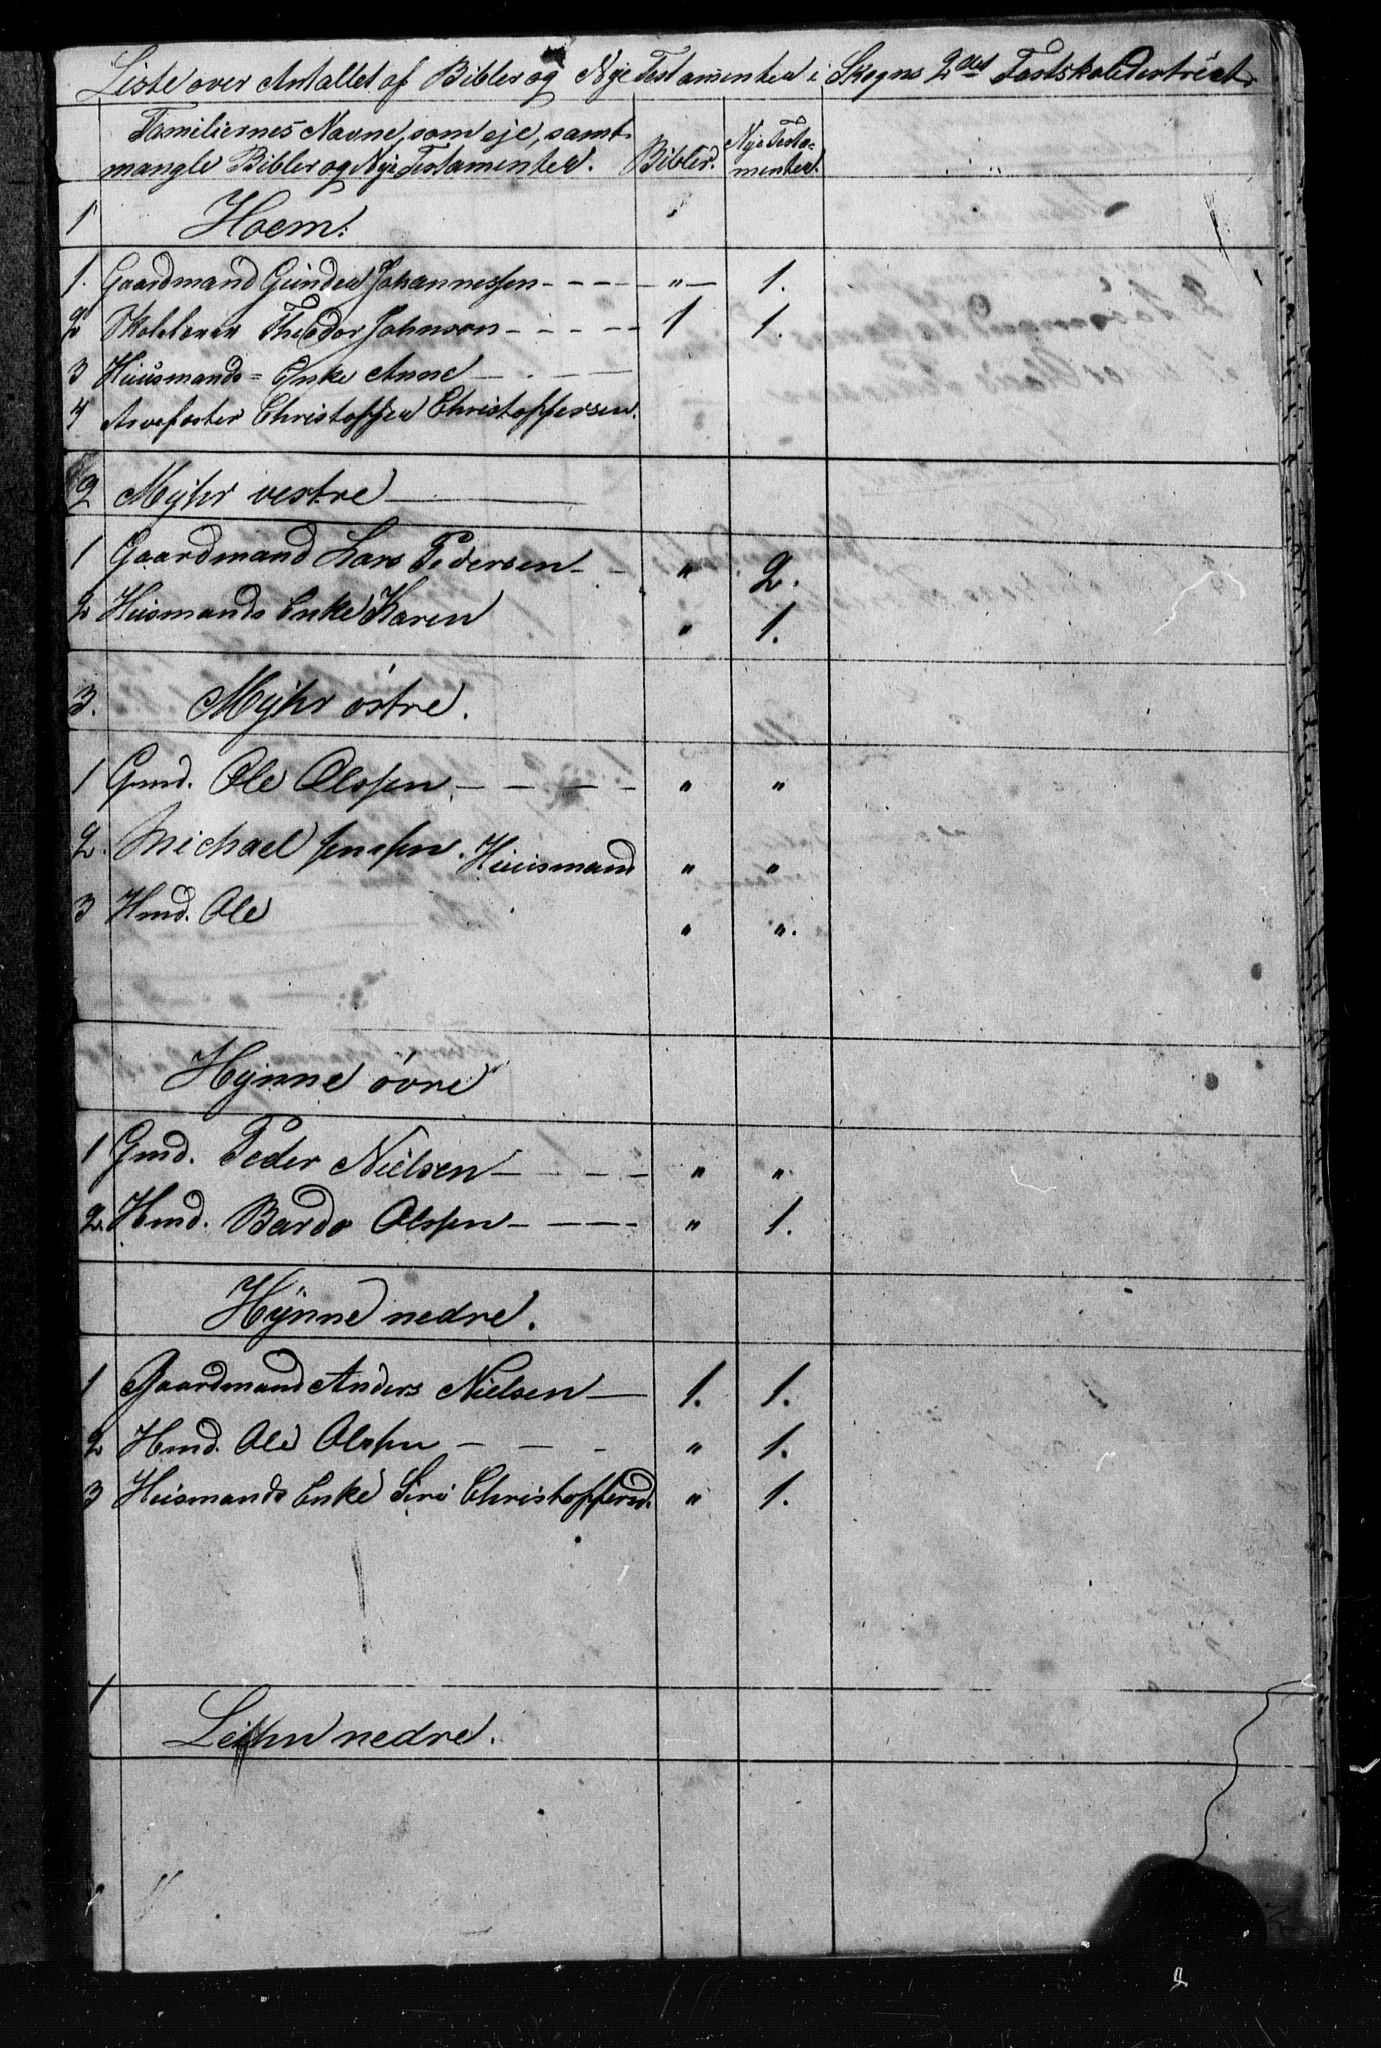 Liste over Antallet af Bibler og Nÿe Testamenter i Skogns 2det Fastskoledistrict.
Familiernes Navne, som eje, samt
mangle Bibler og Nye Testamenter. Bibler. Nye Testa-
menter.
1 Hoem.
1. Gaardmand Gunder Johannessen - - - " - 1.
2 Skolelærer Theodor Johnson - - - - 1 1.
3 Huusmands = Enke Anne - - -
4 Christopher Christoffersen.
2 Mÿhr vestre
1 Gaardmand Lars Pedersen - - " 2.
2 Huusmands Enke Karen " 1.
3. Mÿhr östre.
1 Gmd. Ole Olssen - - - - " "
2. Michael Jenssen. Huusmand " "
3 Hmd. Ole " ".
Hÿnne övre
1 Gmd. Peder Nielsen - - - - " "
2. Hmd. Bardo Olssen - - - - " 1.
Hÿnne nedre.
1 Gaardmand Anders Nielsen - 1. 1.
2 Hmd. Ole Olssen - - - " 1.
3 Huusmands Enke Siri Christofferd. " 1.
1
nedre.